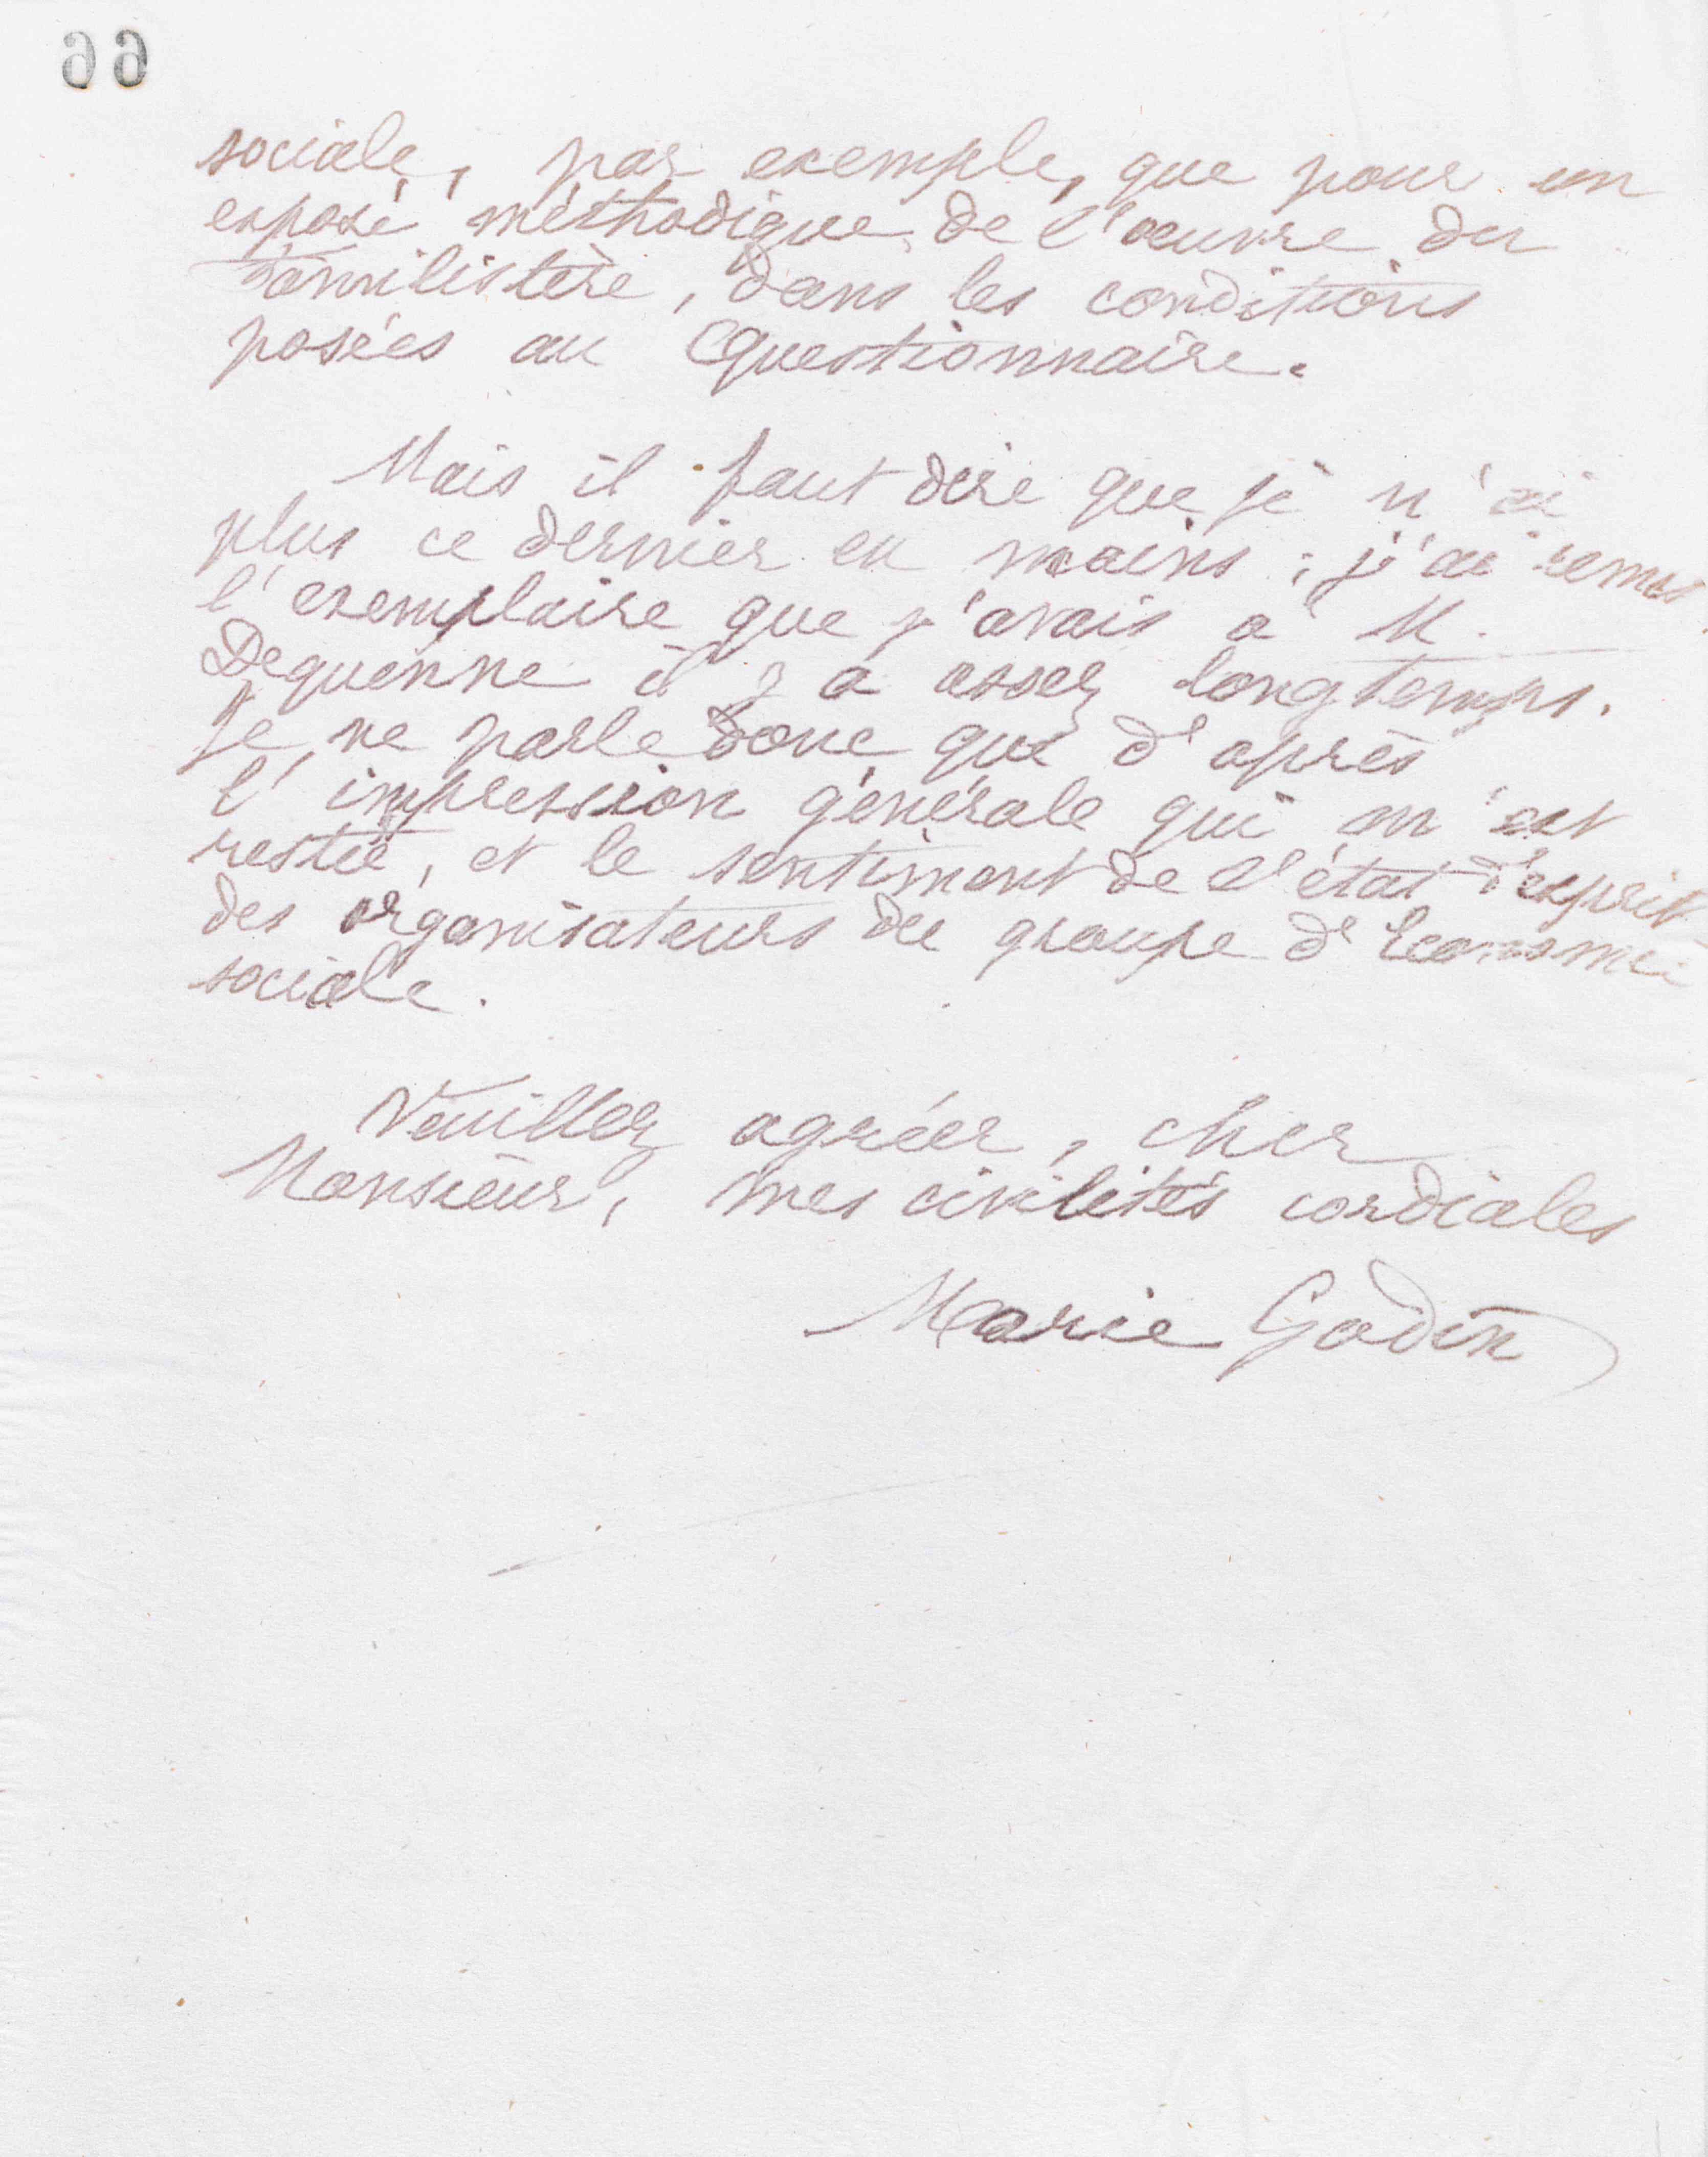 99
sociale, par exemple, que pour un
exposé méthodique de l'œuvre du
Familistère, dans les conditions
posées au Questionnaire.
Mais il faut dire que je n'ai
plus ce dernier en mains ; j'ai remis
l'exemplaire que j'avais à M.
Dequenne il y a assez longtemps.
Je ne parle donc que d'après
l'impression générale qui m'est
restée, et le sentiment de l'état d'esprit
des organisateurs du groupe d'Économie
sociale.
Veuillez agréer, cher
Monsieur, mes civilités cordiales
Marie Godin